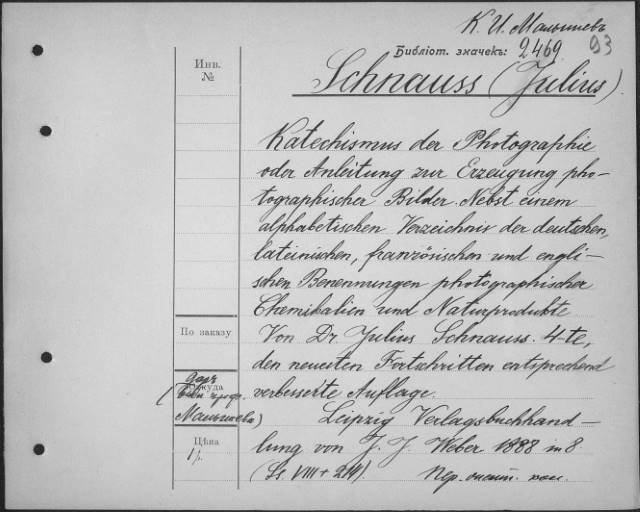 К. И. Малышевъ
Библіот. значекъ: 2469 93
Schnauss (Julius).
Инв.
№
Katechismus der Photographie
oder Anleitung zur Erzeugung pho-
tographischer Bilder. Nebst einem
alphabetischen Verzeichnis der deutschen,
lateinischen, französischen und engli-
schen Benennungen photographischer
Chemikalien und Naturprodukte
По заказу
Von Dr. Julius Schnauss. 4-te,
den neuesten Fortschritten entsprechend
verbesserte Auflage.
Малышева)
Leipzig Verlagsbuchhand-
Цѣна
lung von J. J. Weber 1888 in 8.
(Ss. VIII +